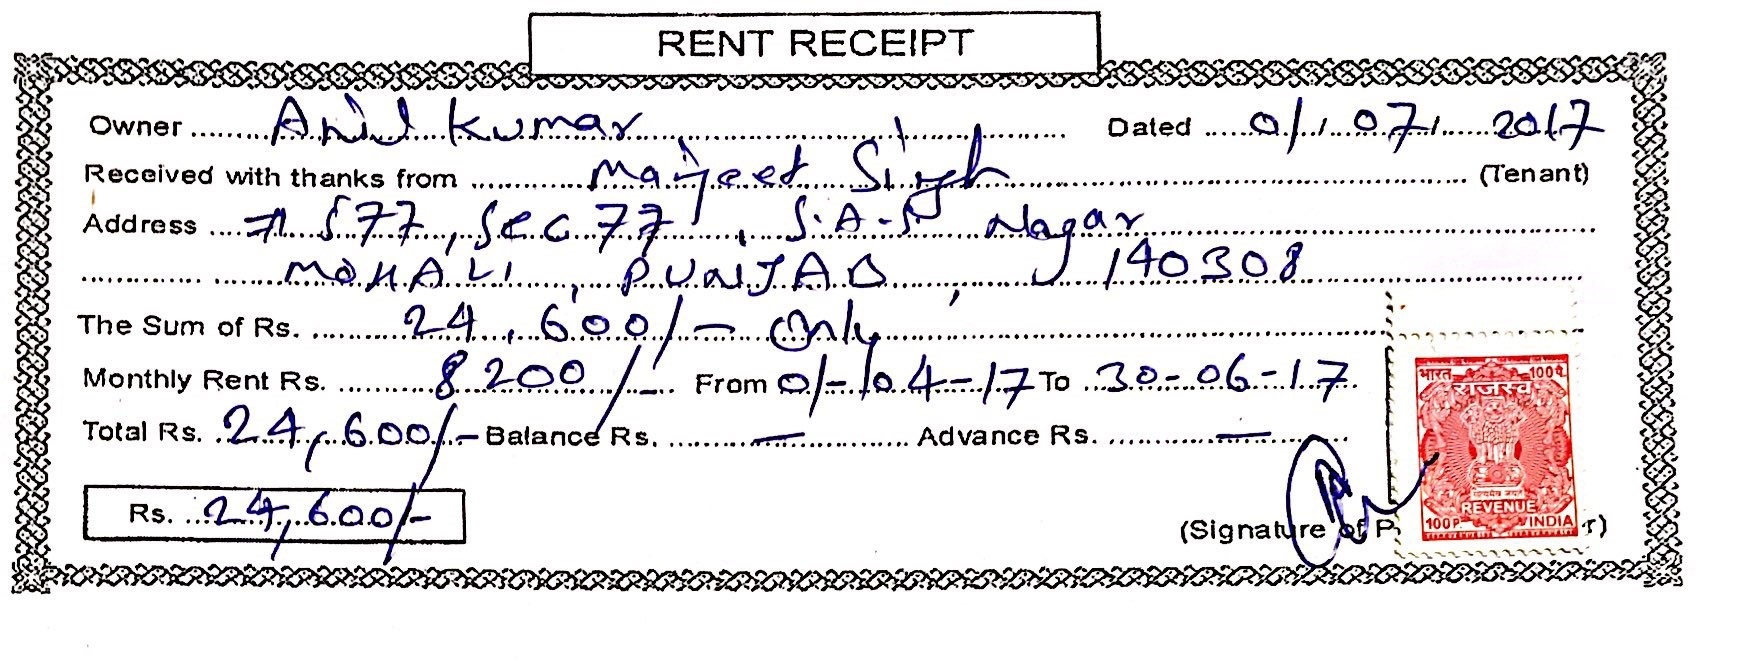 RENT RECEIPT
Owner Anil Kumar Dated 01/07/2017
Received with thanks from Manjeet Singh (Tenant)
Address # 577, Sec 77, S.A.S Nagar
MOHALI, PUNJAB, 140308
The Sum of Rs. 24,600/- Only
Monthly Rent Rs. 8200/- From 01-04-17 To 30-06-17
Total Rs. 24,600/- Balance Rs. — Advance Rs. —
Rs. 24,600/-
(Signature of P r)
भारत 100पै.
राजस्व
सत्यमेव जयते
REVENUE
100P. INDIA